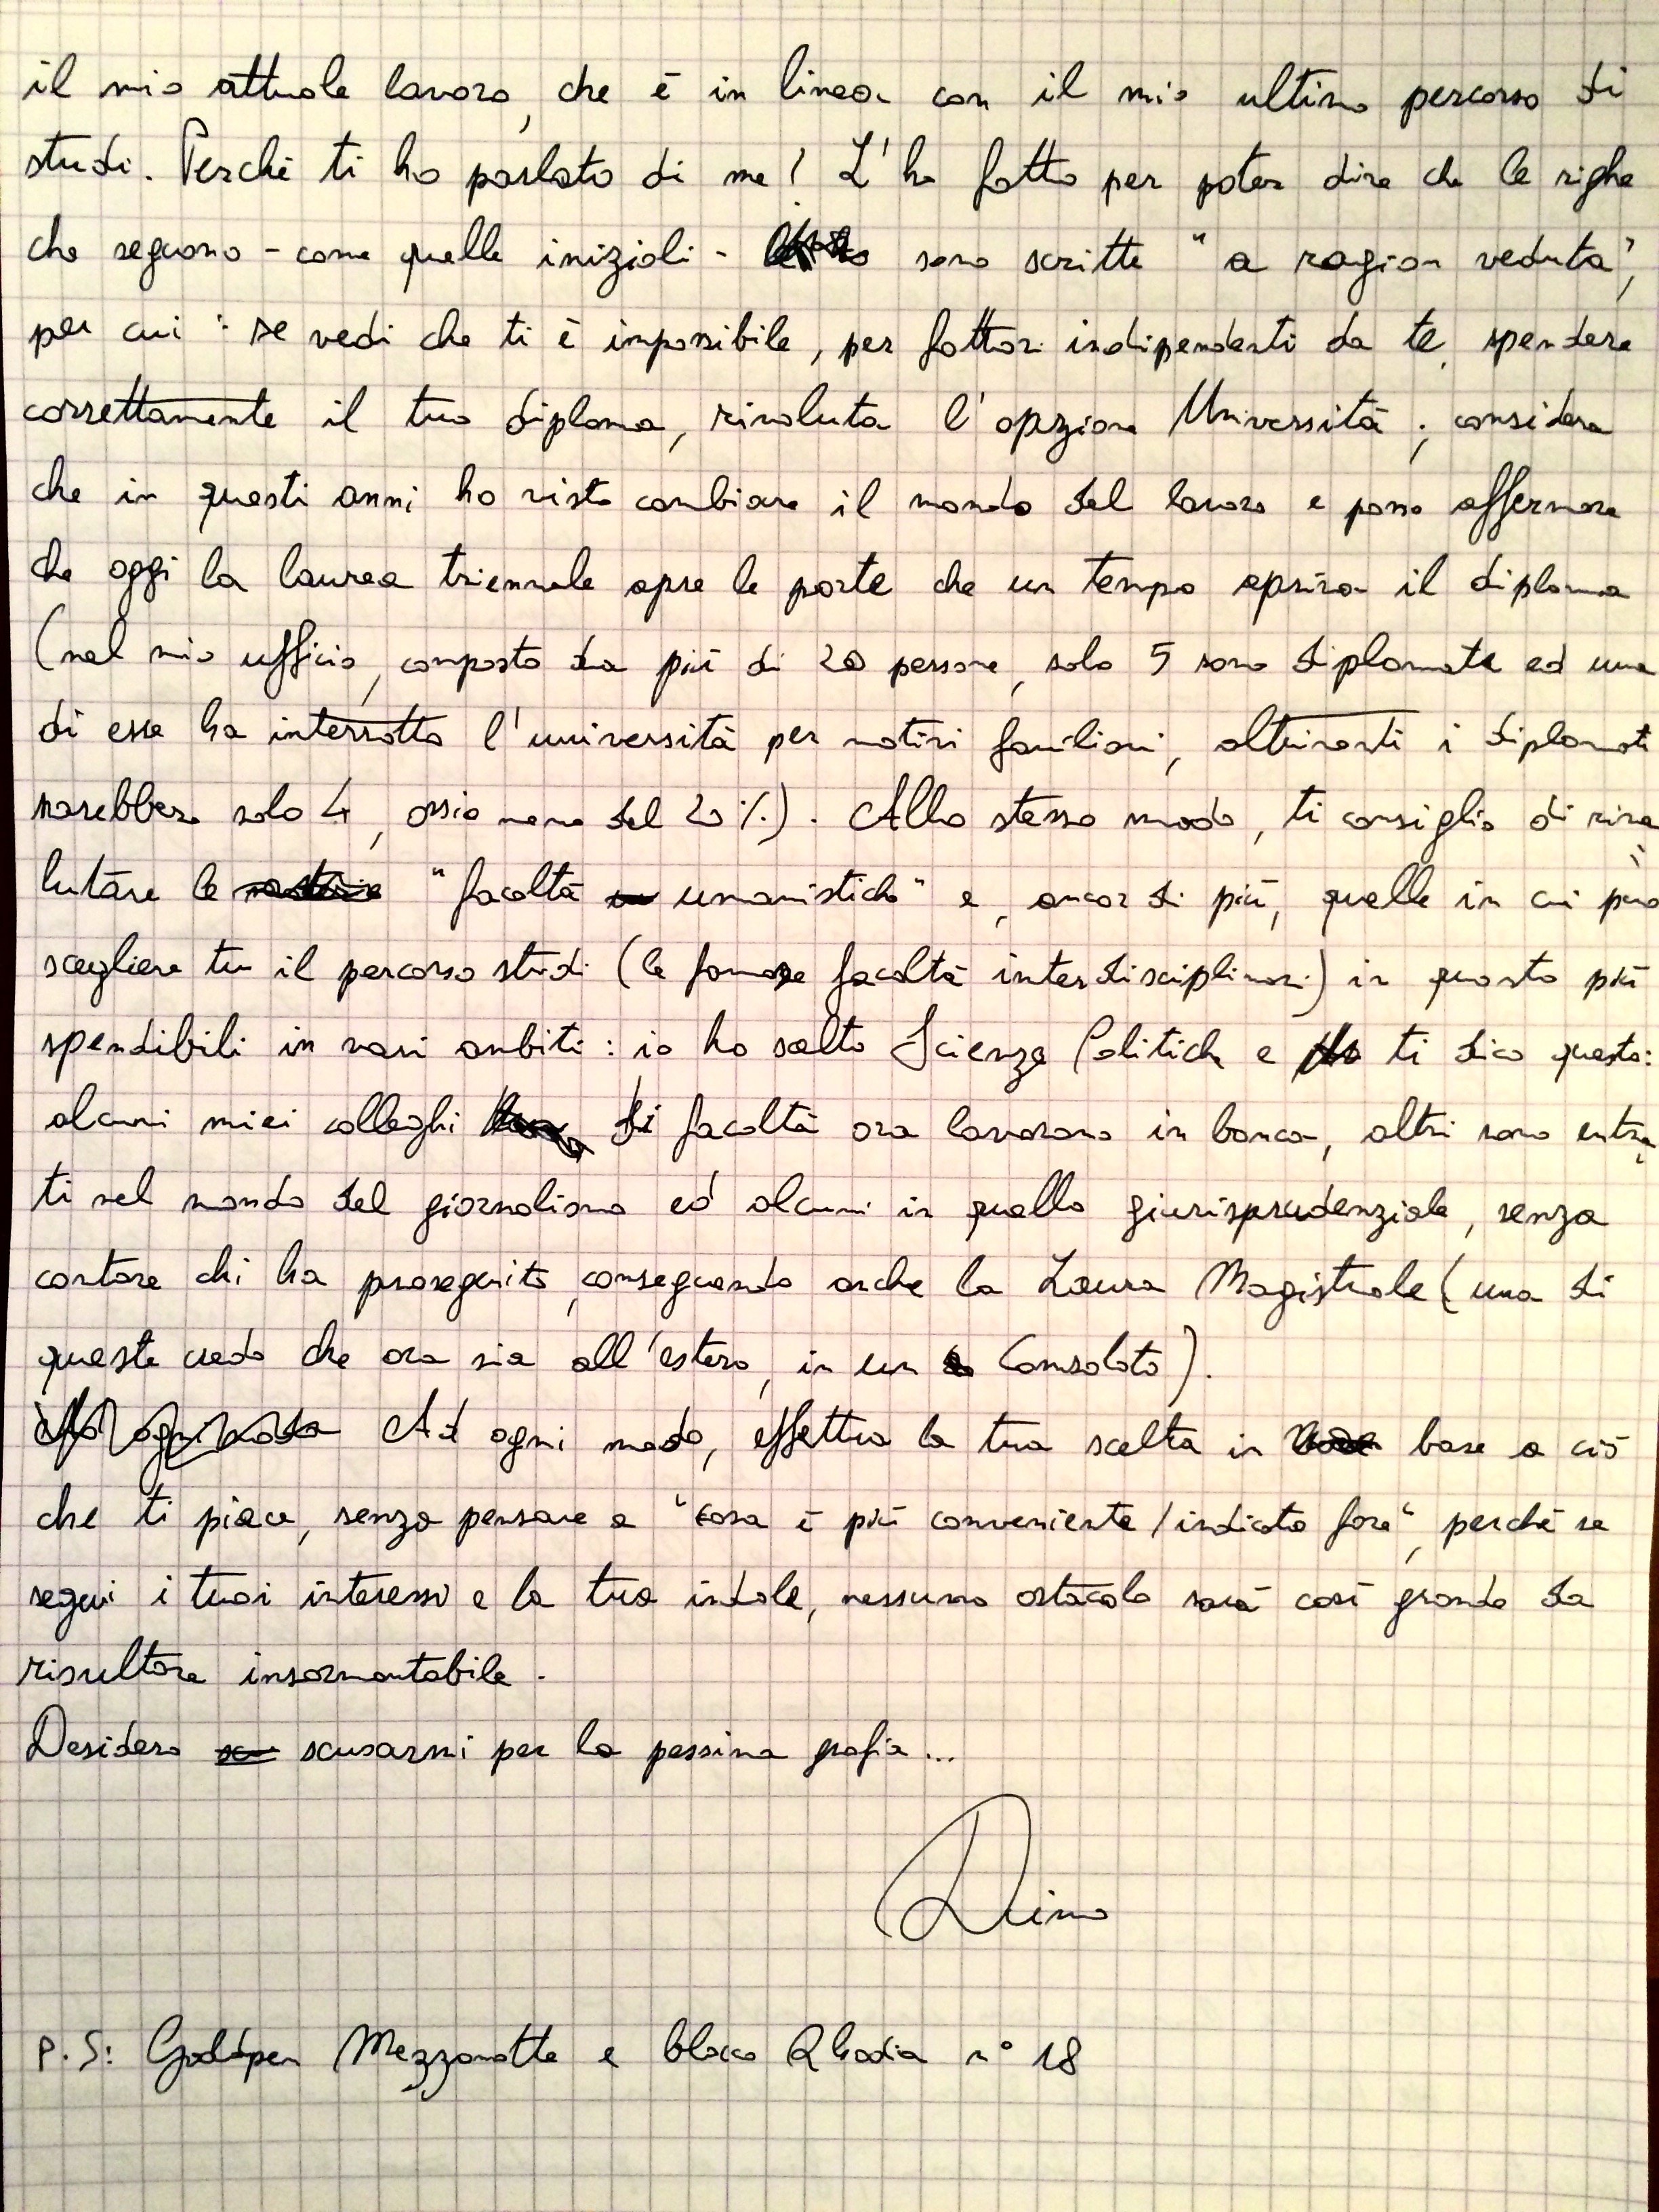 il mio attuale lavoro, che è in linea con il mio ultimo percorso di
studi. Perché ti ho parlato di me? L'ho fatto per poter dire che le righe
che seguono - come quelle iniziali - sono scritte "a ragion veduta",
per cui: se vedi che ti è impossibile, per fattori indipendenti da te, spendere
correttamente il tuo diploma, rivaluta l'opzione Università; considera
che in questi anni ho visto cambiare il mondo del lavoro e posso affermare
che oggi la laurea triennale apre le porte che un tempo apriva il diploma
(nel mio ufficio, composto da più di 20 persone, solo 5 sono diplomate ed una
di esse ha interrotto l'università per motivi familiari, altrimenti i diplomati
sarebbero solo 4, ossia meno del 20%). Allo stesso modo, ti consiglio di riva
lutare le "facoltà umanistiche" e, ancor di più, quelle in cui puoi
scegliere tu il percorso studi (le famose facoltà interdisciplinari) in quanto più
spendibili in vari ambiti: io ho scelto Scienze Politiche e ti dico questo:
alcuni miei colleghi di facoltà ora lavorano in banca, altri sono entra
ti nel mondo del giornalismo ed alcuni in quello giurisprudenziale, senza
contare chi ha proseguito, conseguendo anche la Laurea Magistrale (una di
queste credo che ora sia all'estero, in un Consolato).
Ad ogni modo, effettua la tua scelta in base a ciò
che ti piace, senza pensare a "cosa è più conveniente/indicato fare", perché se
segui i tuoi interessi e la tua indole, nessuno ostacolo sarà così grande da
risultare insormontabile.
Desidero scusarmi per la pessima grafia...
Dino
P.S: Goldspen Mezzanotte e blocco Rhodia n° 18